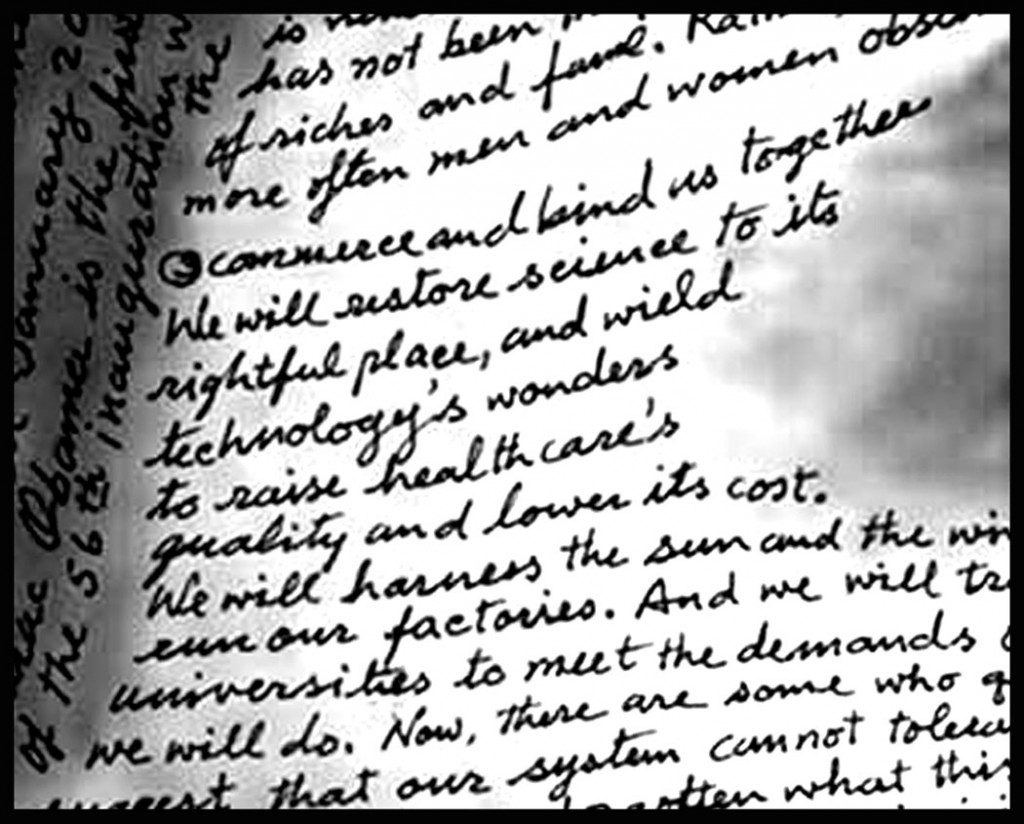 has not been
of riches and fame.
more often men and women
commerce and bind us together
We will restore science to its
rightful place, and wield
technology's wonders
to raise health care's
quality and lower its cost.
We will harness the sun and the
run our factories. And we will
universities to meet the demands
we will do. Now, there are some who
that our system cannot
what
January
Obama is the
of the 56th inauguration
The